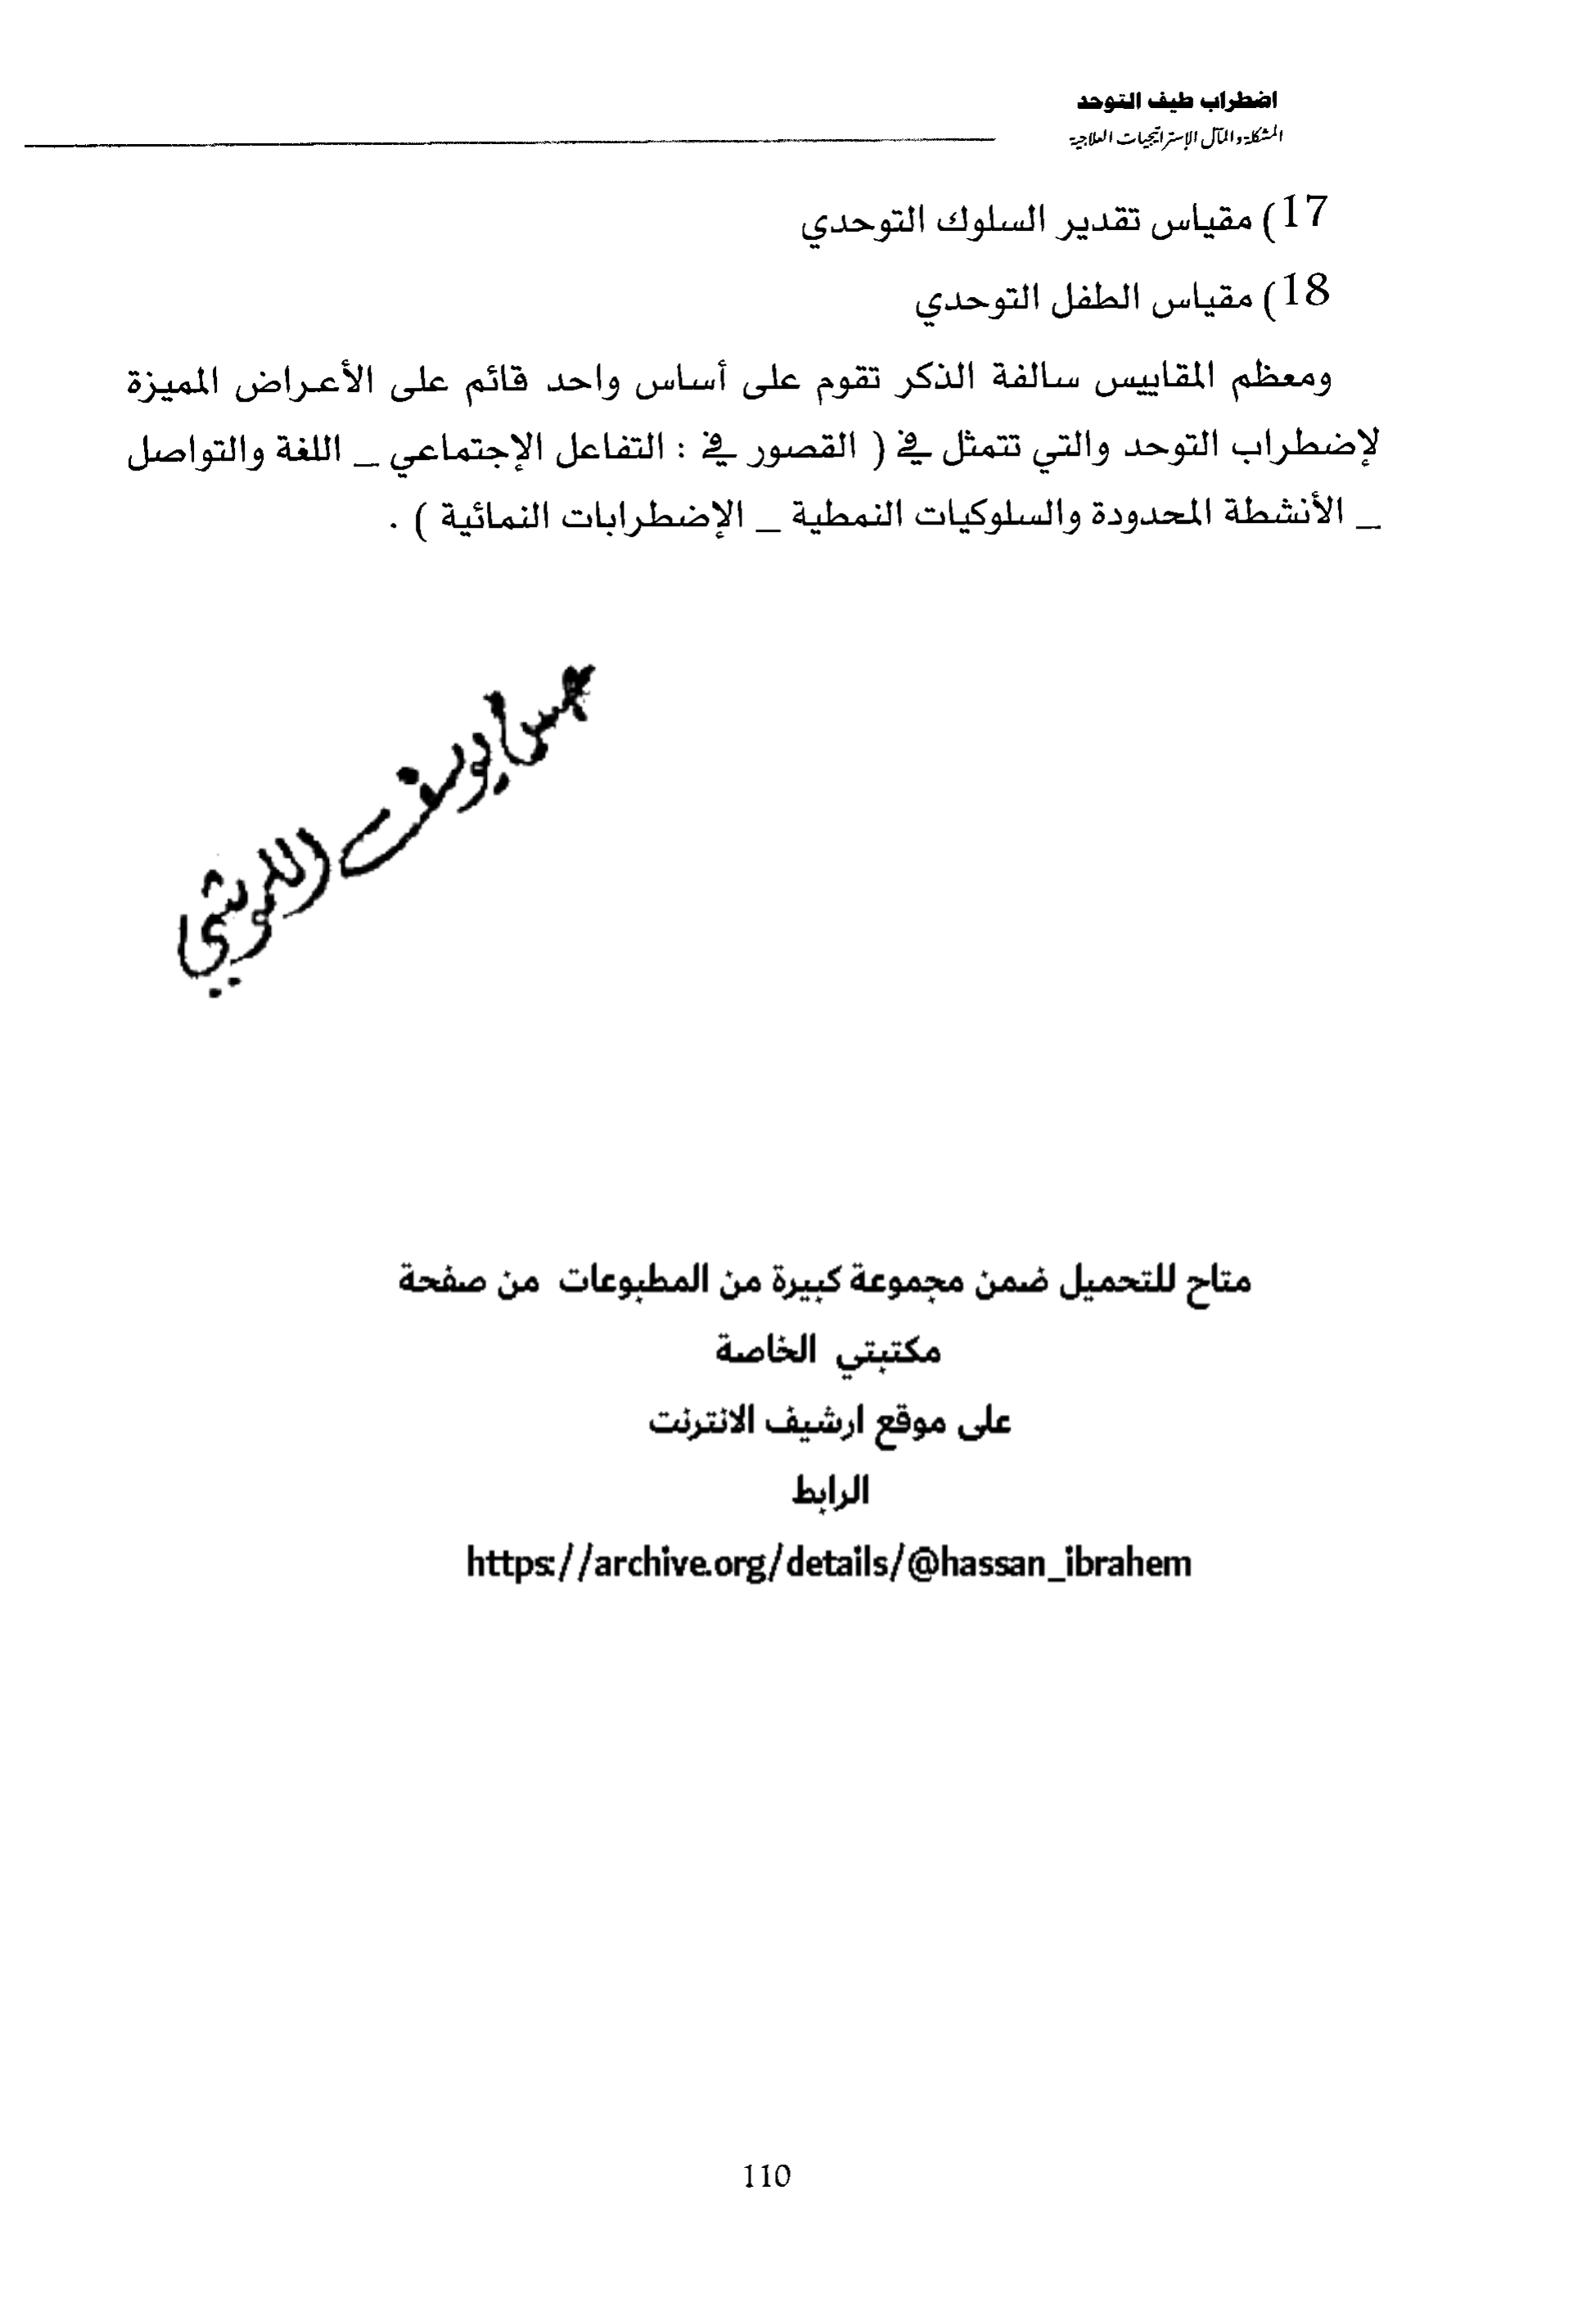 اضطراب طيف التوحد
المشكلة والمآل الإستراتيجيات العلاجية
17) مقياس تقدير السلوك التوحدي
18) مقياس الطفل التوحدي
ومعظم المقاييس سالفة الذكر تقوم على أساس واحد قائم على الأعراض المميزة
لإضطراب التوحد والتي تتمثل في ( القصور في : التفاعل الإجتماعي _ اللغة والتواصل
_ الأنشطة المحدودة والسلوكيات النمطية _ الإضطرابات النمائية ) .
يوسف
متاح للتحميل ضمن مجموعة كبيرة من المطبوعات من صفحة
مكتبتي الخاصة
على موقع ارشيف الانترنت
الرابط
https://archive.org/details/@hassan_ibrahem
110